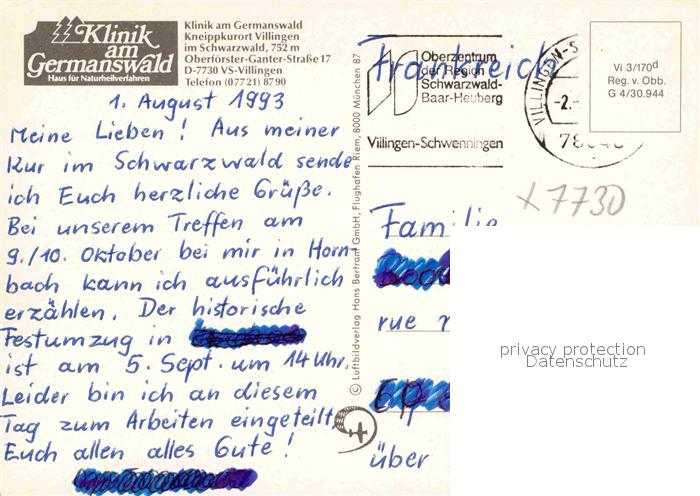 Klinik
am
Germanswald
Haus für Naturheilverfahren
Klinik am Germanswald
Kneippkurort Villingen
im Schwarzwald, 752 m
Oberförster-Ganter-Straße 17
D-7730 VS-Villingen
Telefon (07721) 8790
1. August 1993
Meine Lieben! Aus meiner
Kur im Schwarzwald sende
ich Euch herzliche Grüße.
Bei unserem Treffen am
9./10. Oktober bei mir in Horn-
bach kann ich ausführlich
erzählen. Der historische
Festumzug in
ist am 5. Sept. um 14 Uhr.
Leider bin ich an diesem
Tag zum Arbeiten eingeteilt.
Euch allen alles Gute!
© Luftbildverlag Hans Bertram GmbH, Flughafen Riem, 8000 München 87
Frankreich
Oberzentrum
der Region
Schwarzwald-
Baar-Heuberg
Villingen-Schwenningen
VILLINGEN-S
-2.-
Vi 3/170d
Reg. v. Obb.
G 4/30.944
x 7730
Familie
rue
über
privacy protection
Datenschutz